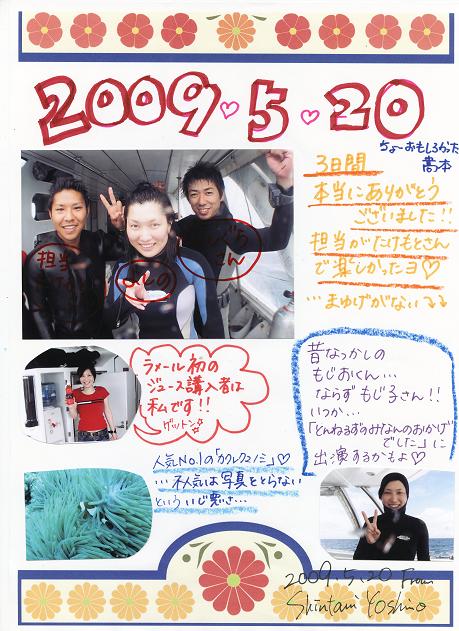 2009♡5♡20
ちょーおもしろかった
3日間
本当にありがとう
ございました!!
担当がたけもとさん
で楽しかったヨ♡
…まゆげがない
担当
よしの
さん
ラメール初の
ジュース購入者は
私です!!
ゲットン☆
昔なつかしの
もじおくん…
ならずもじ子さん!!
いつか…
「とんねるずのみなさんのおかげ
でした」に
出演するかもよ♡
人気No.1の「カクレクマノミ」♡
…不人気は写真をとらない
といういじ悪さ…
2009.5.20 From
Shintani Yoshino